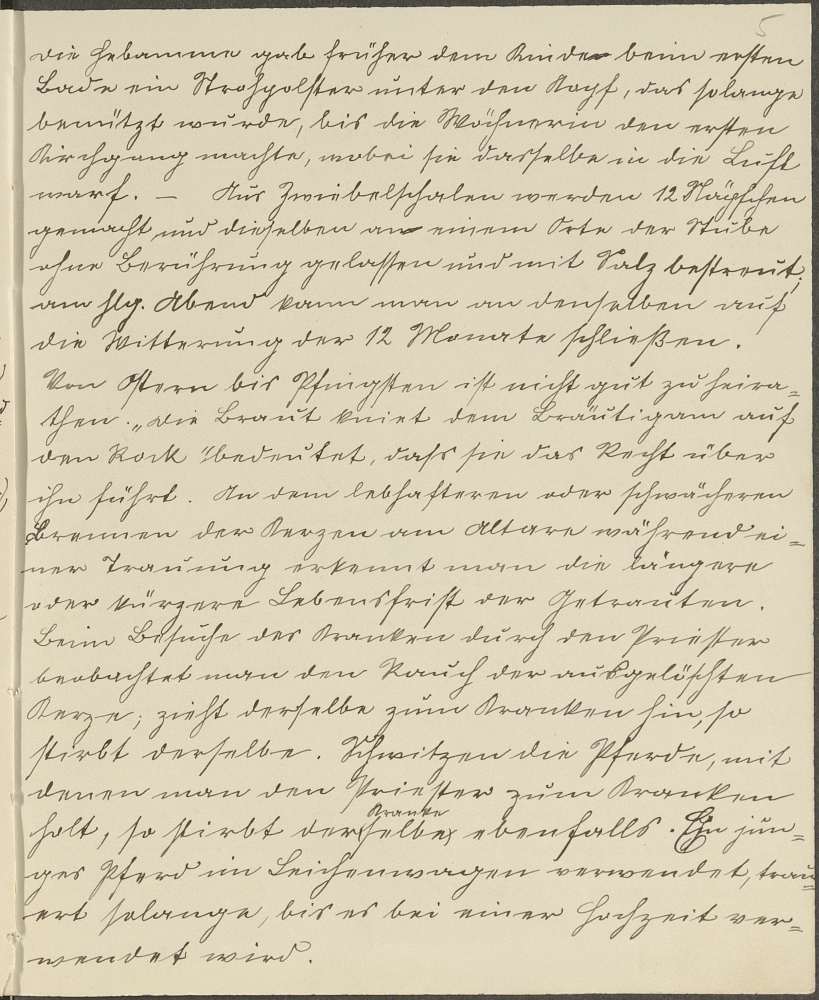 5
Die Hebamme gab früher dem Kinde beim ersten
Bade ein Strohpolster unter den Kopf, das solange
benützt wurde, bis die Wöchnerin den ersten
Kirchgang machte, wobei sie dasselbe in die Luft
warf. — Aus Zwiebelschalen werden 12 Näpfchen
gemacht und dieselben an einem Orte der Stube
ohne Berührung gelassen und mit Salz bestreut;
am hlg. Abend kann man an denselben auf
die Witterung der 12 Monate schließen.
Von Ostern bis Pfingsten ist nicht gut zu heira=
then. „Die Braut kniet dem Bräutigam auf
den Rock" bedeutet, dass sie das Recht über
ihn führt. An dem lebhafteren oder schwächeren
Brennen der Kerzen am Altare während ei=
ner Trauung erkennt man die längere
oder kürzere Lebensfrist der Getrauten.
Beim Besuche des Kranken durch den Priester
beobachtet man den Rauch der ausgelöschten
Kerze; zieht derselbe zum Kranken hin, so
stirbt derselbe. Schwitzen die Pferde, mit
denen man den Priester zum Kranken
Kranke
holt, so stirbt derselbe ebenfalls. Ein jun=
ges Pferd im Leichenwagen verwendet, trau=
ert solange, bis es bei einer Hochzeit ver=
wendet wird.